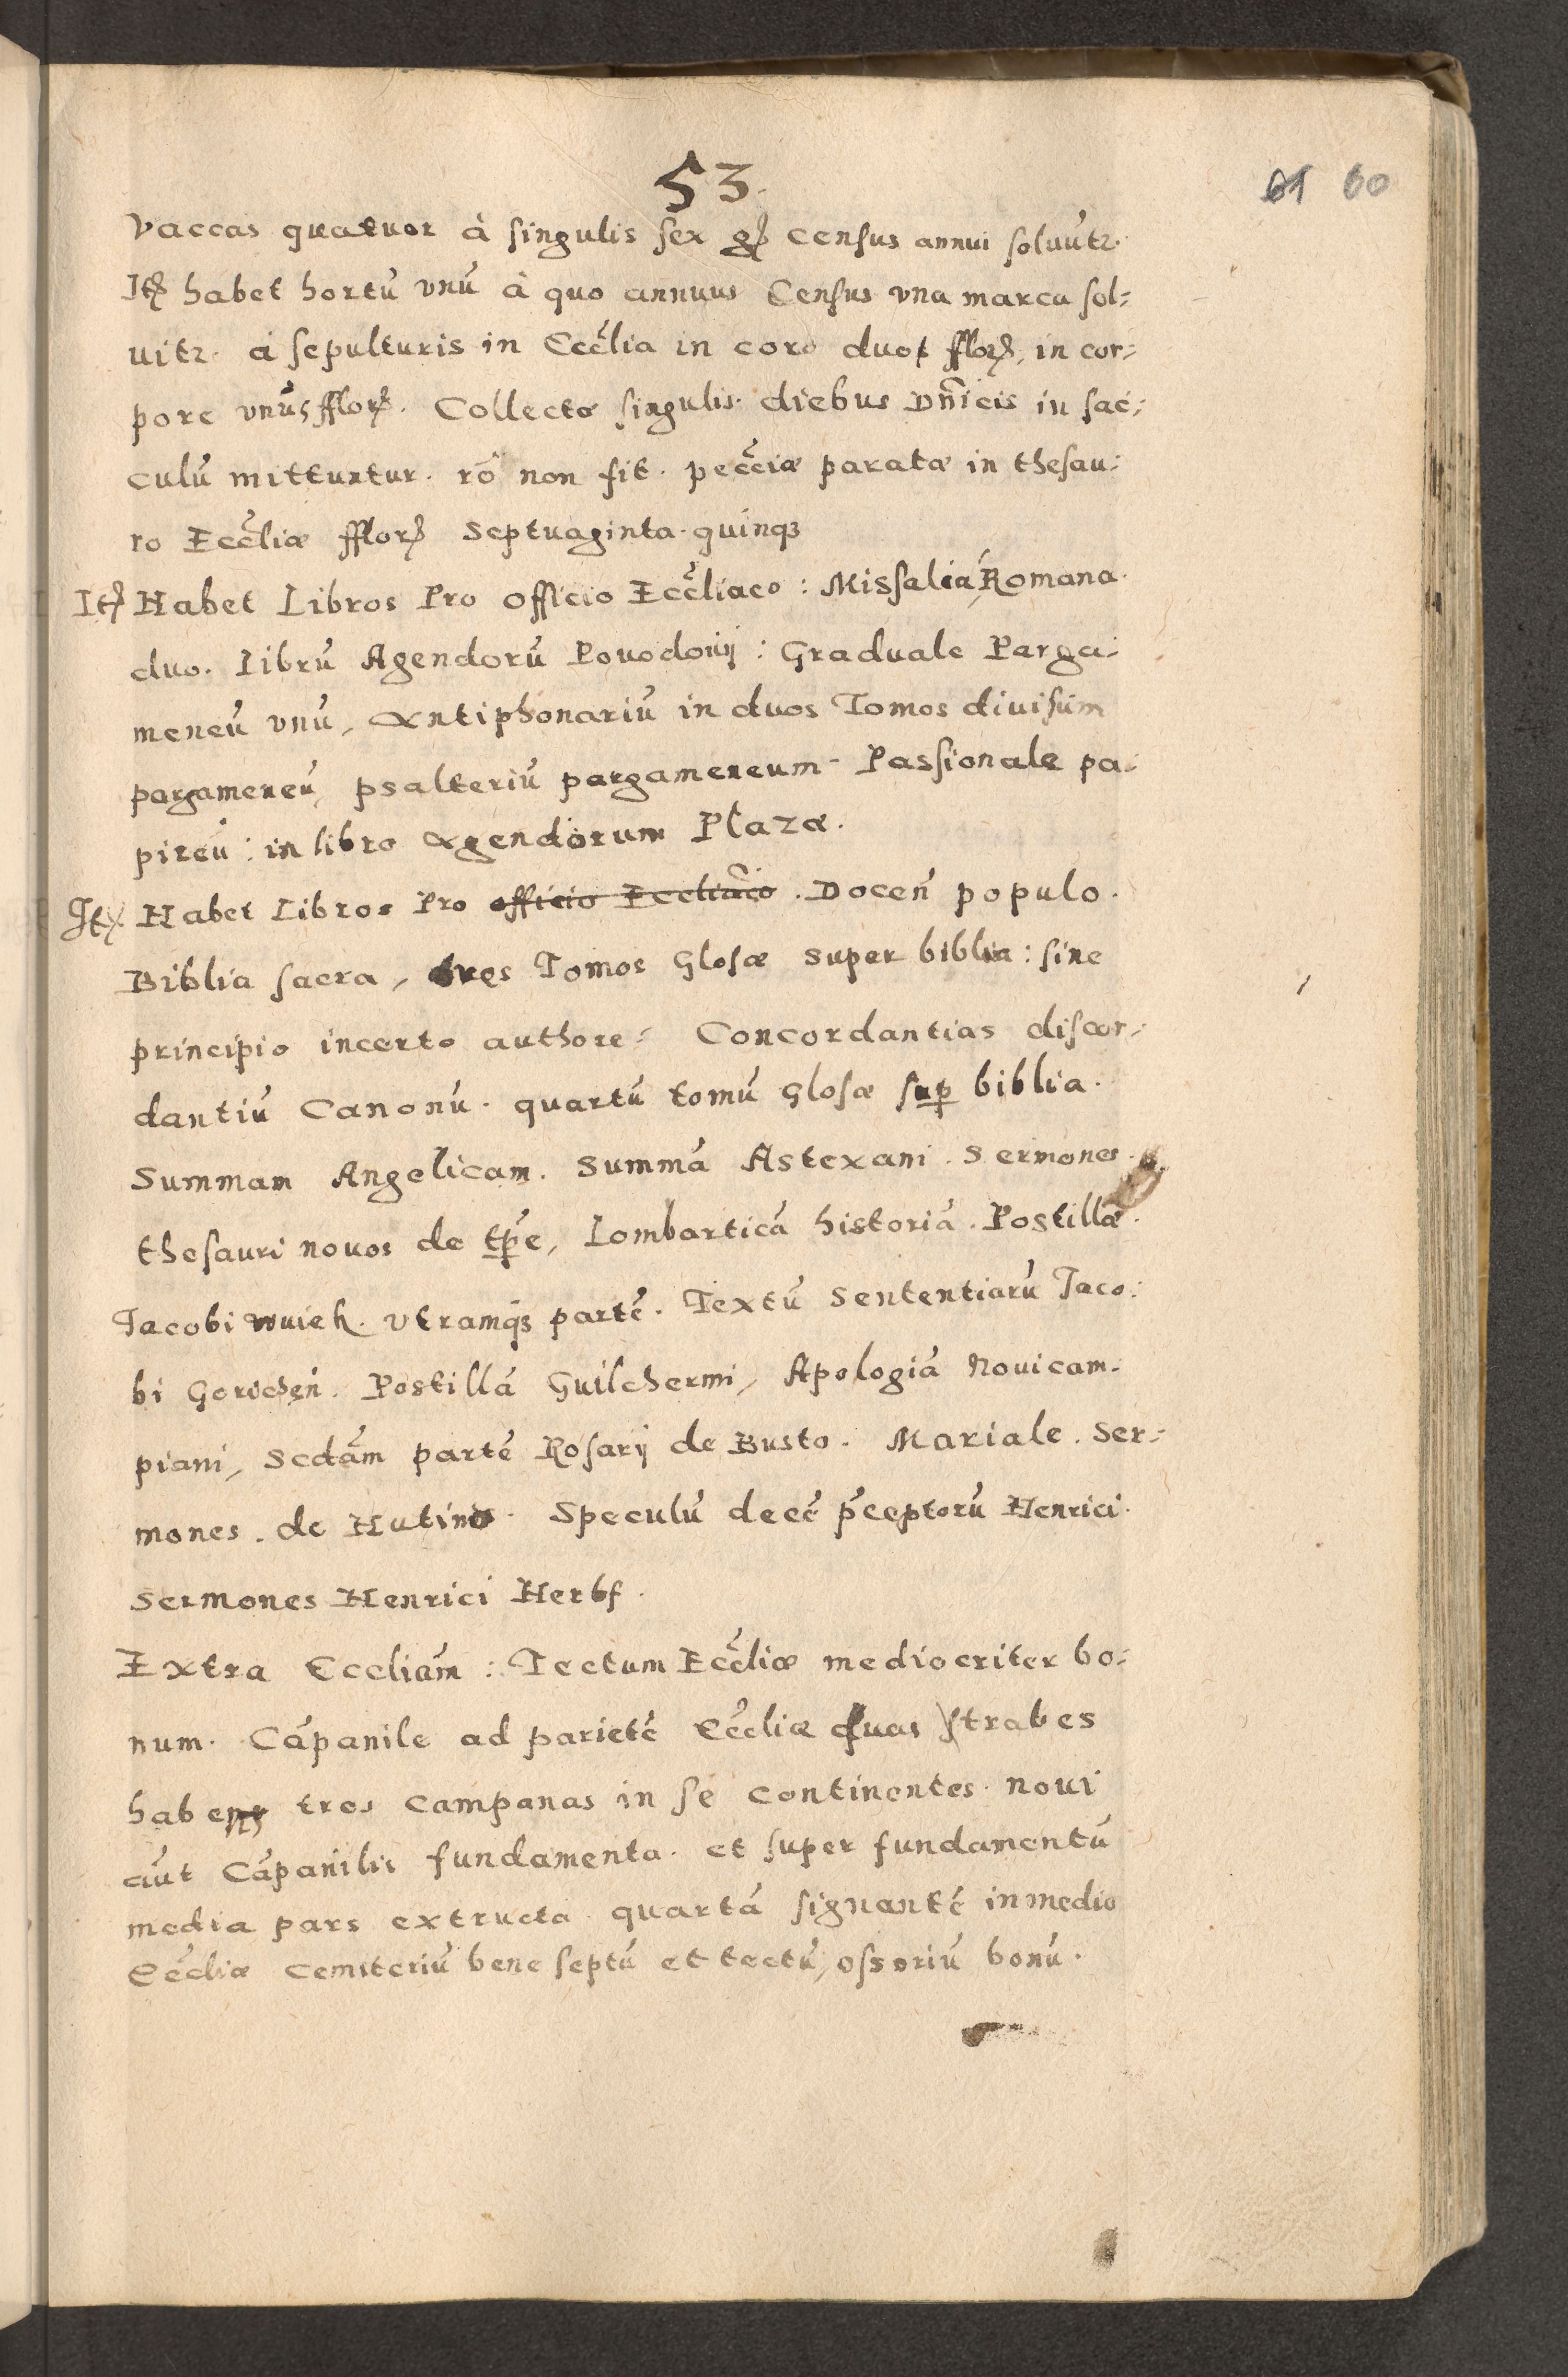 53.
61 60
Vaccas quatuor à singulis sex gr̃ census annui soluũtr.
Itẽ habet hortũ vnũ à quo annuus Census vna marca sol=
uitr. à sepulturis in Eccẽlia in coro duos fflor̃, in cor=
pore vnũs fflor̃. Collectæ singulis diebus Dñicis in sac=
culũ mittuntur. rõ non fit. peccĩæ paratæ in thesau=
ro Eccẽliæ fflor̃ Septuaginta quinq3
Itẽ Habet Libros Pro officio Eccẽliaco : Missalia Romana
duo. Librũ Agendorũ Pouodouij : Graduale Parga=
meneũ vnũ, Antiphonariũ in duos Tomos diuisum
pargameneũ, psalteriũ pargameneum. Passionale pa=
pireũ : in libro Agendorum Plazæ.
Itẽ Habet Libros Pro officio Eccliaco . Doceñ populo.
Biblia sacra, tres Tomos Glosæ super biblia : sine
principio incerto authore. Concordantias discor=
dantiũ Canonũ. quartũ tomũ Glosæ sup biblia.
Summam Angelicam. Summã Astexani. Sermones
thesauri nouos de tp̃e, Lombarticã historiã. Postillæ
Jacobi Wuiek. vtramq3 partẽ. Textũ Sententiarũ Jaco=
bi Gorichen. Postillã Guilchermi, Apologiã Nouicam=
piani, Scdãm partẽ Rosarij de Busto. Mariale. Ser=
mones. de Hutino. Speculũ decẽ p̃ceptorũ Henrici.
Sermones Henrici Herbf.
Extra Eccliãm : Tectum Eccẽliæ mediocriter bo=
num. Cãpanile ad parietẽ Eccẽliæ duas trabes
habens tres campanas in se continentes. noui
aũt Cãpanilis fundamenta. et super fundamentũ
media pars extructa quartã signantẽ in medio
Eccẽliæ cemiteriũ bene septũ et tectũ, ossoriũ bonũ.